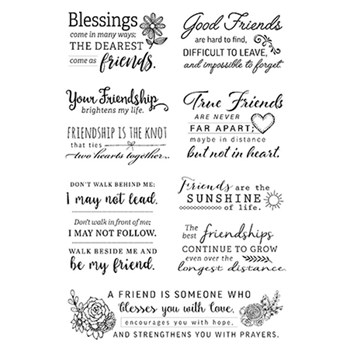 Blessings
come in many ways;
THE DEAREST
come as friends.
Good Friends
are hard to find,
DIFFICULT TO LEAVE,
and impossible to forget
Your Friendship
brightens my life.
True Friends
ARE NEVER
FAR APART;
maybe in distance
but not in heart.
FRIENDSHIP IS THE KNOT
that ties
two hearts together...
DON'T WALK BEHIND ME;
I may not lead.
Don't walk in front of me;
I MAY NOT FOLLOW.
WALK BESIDE ME AND
be my friend.
Friends are the
SUNSHINE
of life.
The best friendships
CONTINUE TO GROW
even over the
longest distance.
A FRIEND IS SOMEONE WHO
blesses you with love,
encourages you with hope,
AND STRENGTHENS YOU WITH PRAYERS.